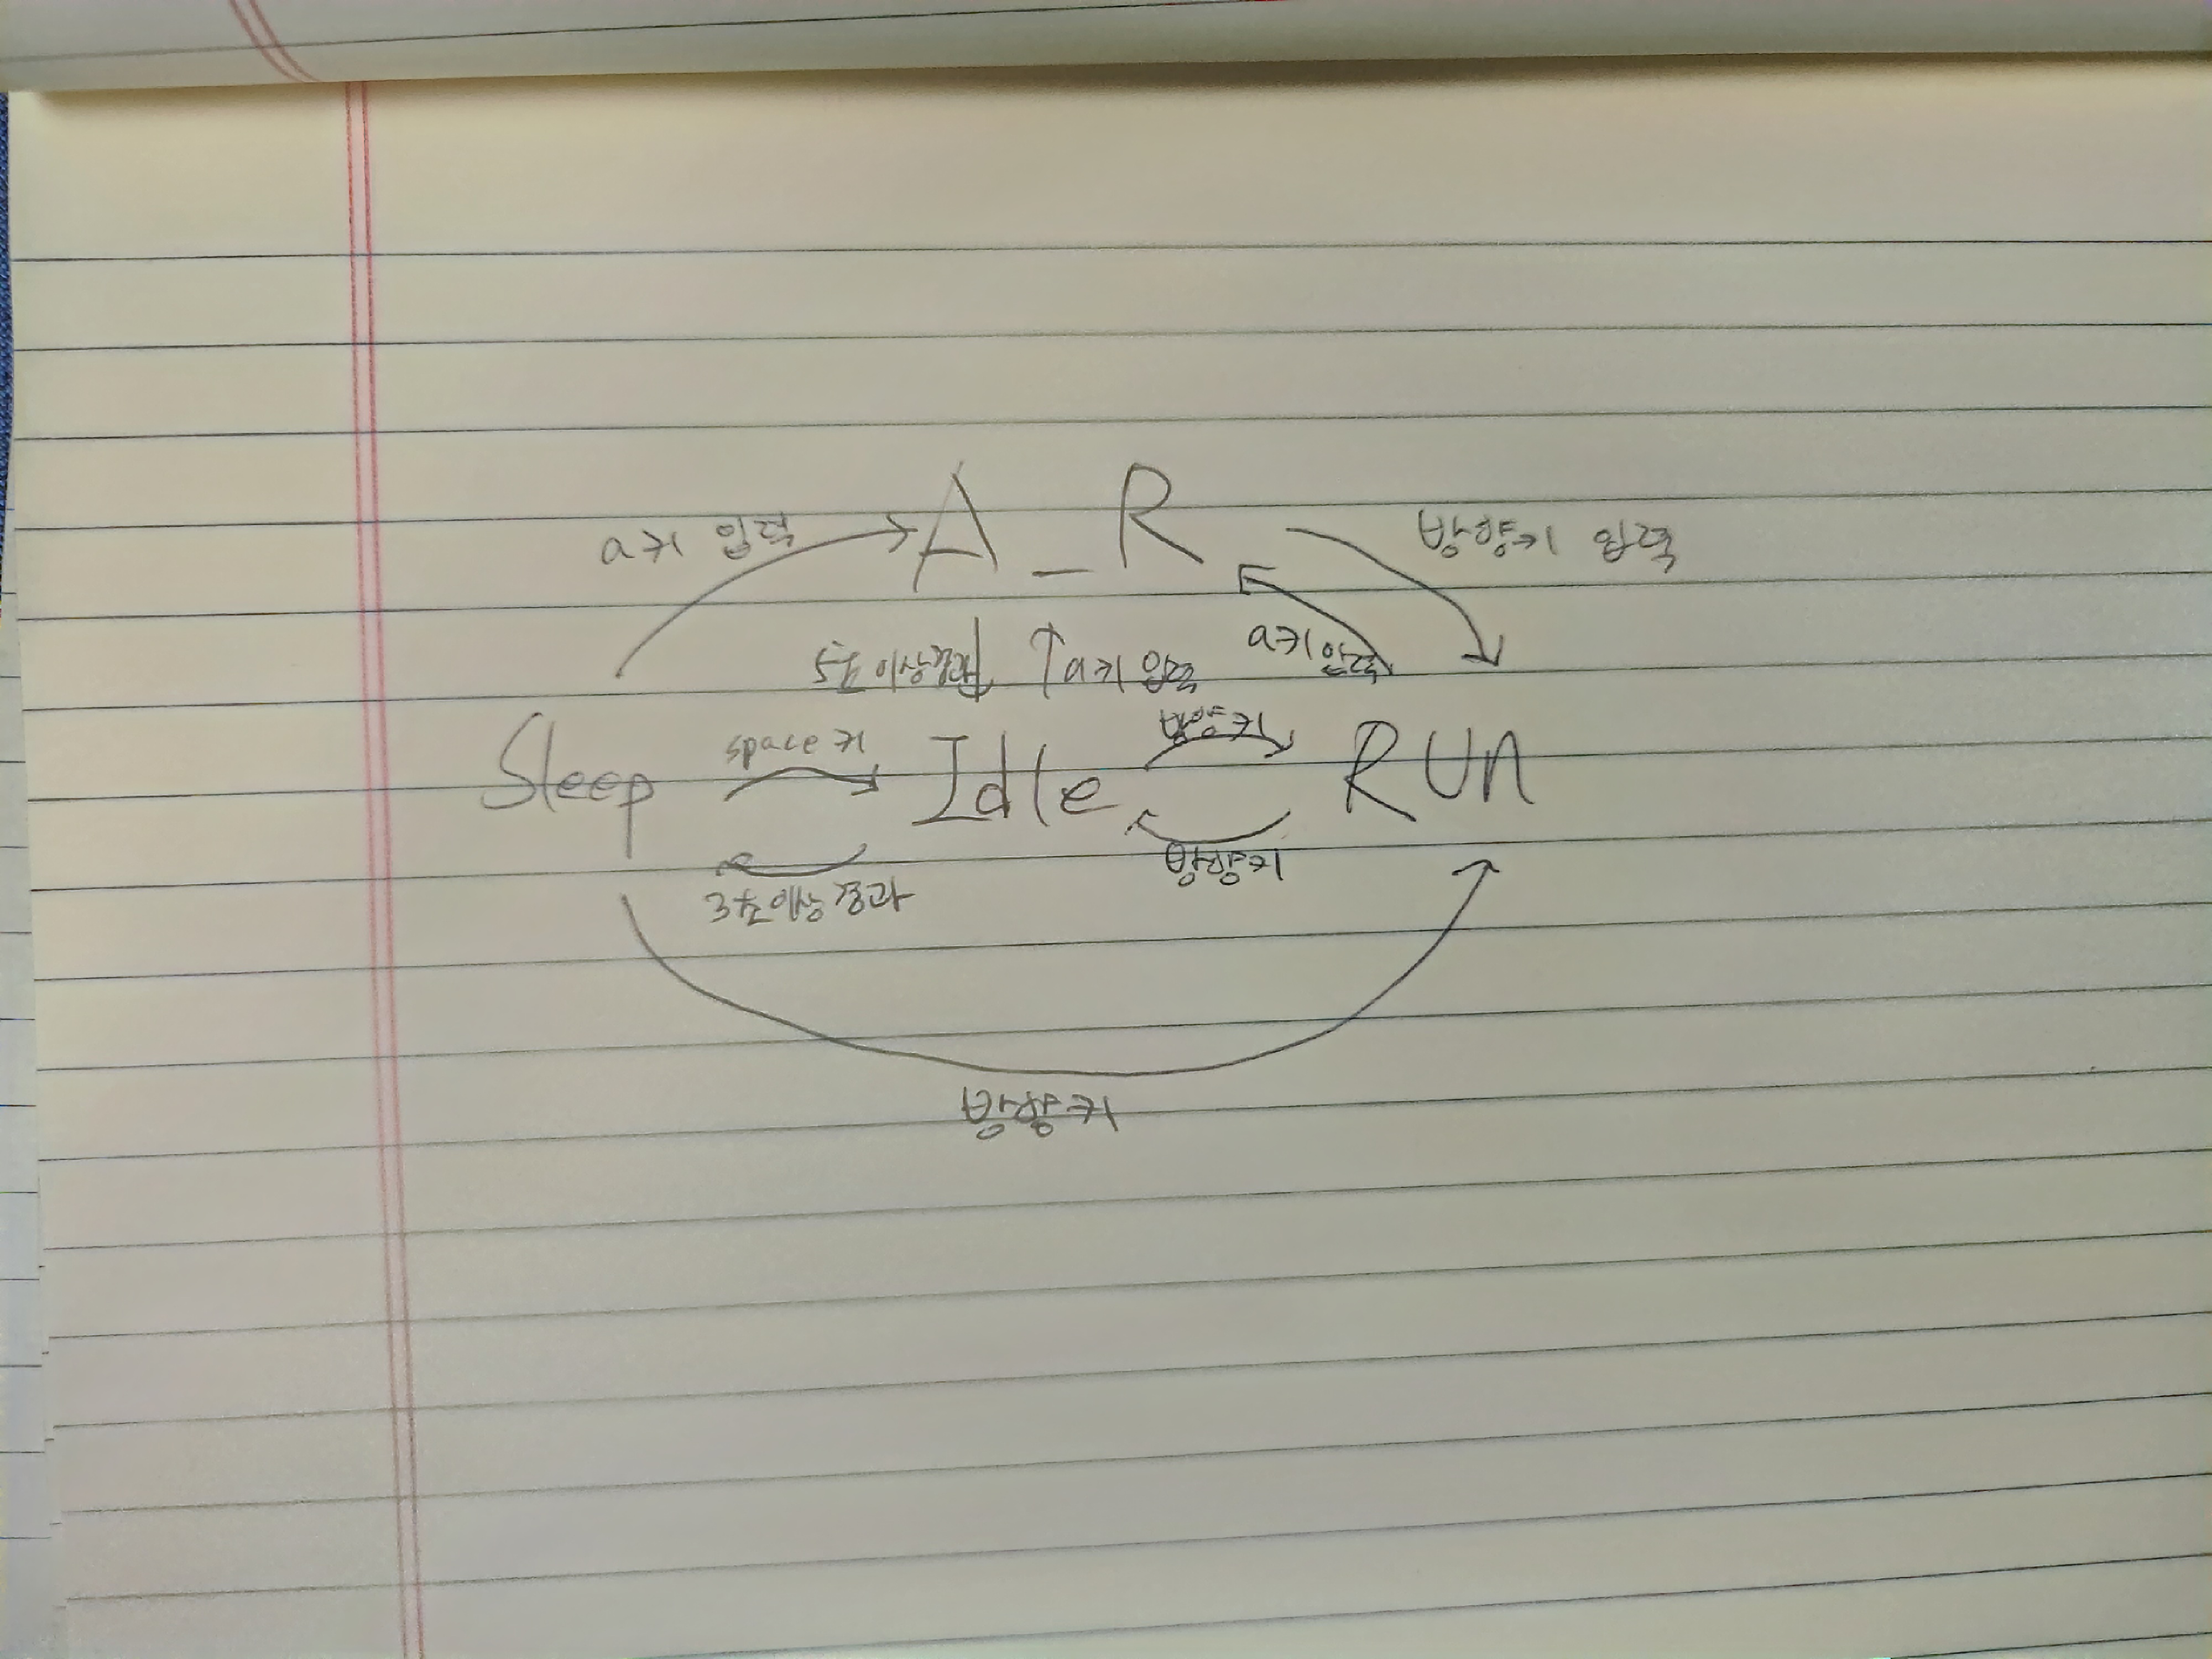 A_R
a키 입력
방향키 입력
5초 이상경과
a키 입력
a키 입력
Sleep
space키
Idle
방향키
RUn
3초이상 경과
방향키
방향키